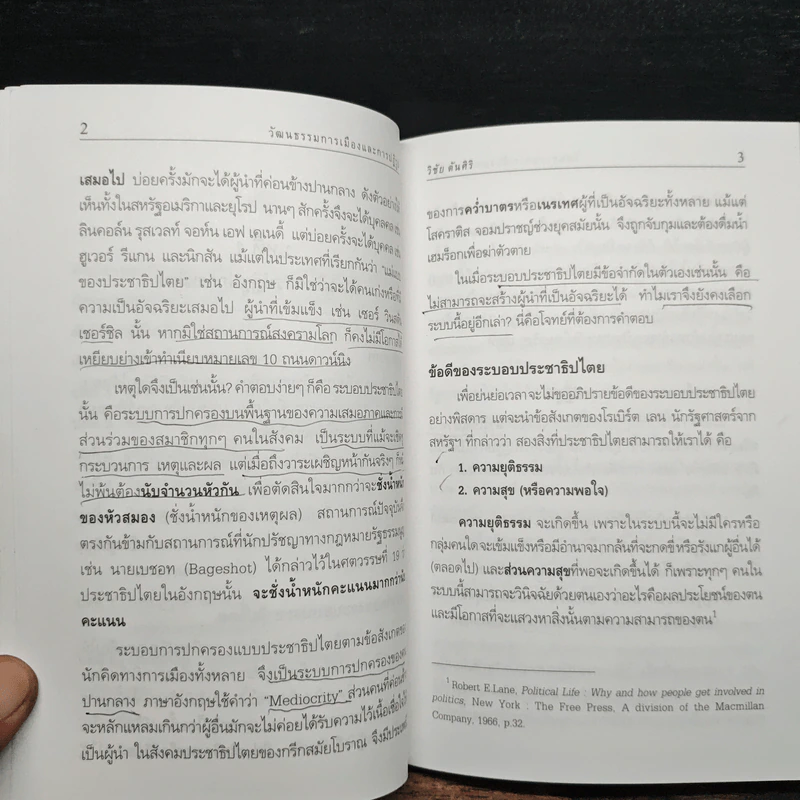 2
วัฒนธรรมการเมืองและการ
เสมอไป บ่อยครั้งมักจะได้ผู้นำที่ค่อนข้างปานกลาง ดังตัวอย่าง
เห็นทั้งในสหรัฐอเมริกาและยุโรป นานๆ สักครั้งจึงจะได้บุคคล เช่น
ลินคอล์น รุสเวลท์ จอห์น เอฟ เคเนดี้ แต่บ่อยครั้งจะได้บุคคล เช่น
ฮูเวอร์ รีแกน และนิกสัน แม้แต่ในประเทศที่เรียกกันว่า "แม่แบบ
ของประชาธิปไตย" เช่น อังกฤษ ก็มิใช่ว่าจะได้คนเก่งหรือ
ความเป็นอัจฉริยะเสมอไป ผู้นำที่เข้มแข็ง เช่น เซอร์ วินสตัน
เชอร์ชิล นั้น หากมิใช่สถานการณ์สงครามโลก ก็คงไม่มีโอกาสได้
เหยียบย่างเข้าทำเนียบหมายเลข 10 ถนนดาวน์นิง
เหตุใดจึงเป็นเช่นนั้น? คำตอบง่ายๆ ก็คือ ระบอบประชาธิปไตย
นั้น คือระบบการปกครองบนพื้นฐานของความเสมอภาคและการมี
ส่วนร่วมของสมาชิกทุกๆ คนในสังคม เป็นระบบที่แม้จะเชิดชู
กระบวนการ เหตุและผล แต่เมื่อถึงวาระเผชิญหน้ากันจริงๆ ก็
ไม่พ้นต้องนับจำนวนหัวกัน เพื่อตัดสินใจมากกว่าจะชั่งน้ำหนัก
ของหัวสมอง (ชั่งน้ำหนักของเหตุผล) สถานการณ์ปัจจุบัน
ตรงกันข้ามกับสถานการณ์ที่นักปรัชญาทางกฎหมายรัฐธรรมนูญ
เช่น นายเบชอท (Bageshot) ได้กล่าวไว้ในศตวรรษที่ 19 ว่า
ประชาธิปไตยในอังกฤษนั้น จะชั่งน้ำหนักคะแนนมากกว่านับ
คะแนน
ระบอบการปกครองแบบประชาธิปไตยตามข้อสังเกตของ
นักคิดทางการเมืองทั้งหลาย จึงเป็นระบบการปกครองของคน
ปานกลาง ภาษาอังกฤษใช้คำว่า "Mediocrity" ส่วนคนที่ค่อนข้าง
จะหลักแหลมเกินกว่าผู้อื่นมักจะไม่ค่อยได้รับความไว้เนื้อเชื่อใจให้
เป็นผู้นำ ในสังคมประชาธิปไตยของกรีกสมัยโบราณ จึงมีประเพณี
วิชัย ตันศิริ
3
ของการคว่ำบาตรหรือเนรเทศผู้ที่เป็นอัจฉริยะทั้งหลาย แม้แต่
โสคราติส จอมปราชญ์ช่วงยุคสมัยนั้น จึงถูกจับกุมและต้องดื่มน้ำ
เฮมร็อกเพื่อฆ่าตัวตาย
ในเมื่อระบอบประชาธิปไตยมีข้อจำกัดในตัวเองเช่นนั้น คือ
ไม่สามารถจะสร้างผู้นำที่เป็นอัจฉริยะได้ ทำไมเราจึงยังคงเลือก
ระบบนี้อยู่อีกเล่า? นี่คือโจทย์ที่ต้องการคำตอบ
ข้อดีของระบอบประชาธิปไตย
เพื่อย่นย่อเวลาจะไม่ขออภิปรายข้อดีของระบอบประชาธิปไตย
อย่างพิสดาร แต่จะนำข้อสังเกตของโรเบิร์ต เลน นักรัฐศาสตร์จาก
สหรัฐฯ ที่กล่าวว่า สองสิ่งที่ประชาธิปไตยสามารถให้เราได้ คือ
1. ความยุติธรรม
2. ความสุข (หรือความพอใจ)
ความยุติธรรม จะเกิดขึ้น เพราะในระบบนี้จะไม่มีใครหรือ
กลุ่มคนใดจะเข้มแข็งหรือมีอำนาจมากล้นที่จะกดขี่หรือรังแกผู้อื่นได้
(ตลอดไป) และส่วนความสุขที่พอจะเกิดขึ้นได้ ก็เพราะทุกๆ คนใน
ระบบนี้สามารถจะวินิจฉัยด้วยตนเองว่าอะไรคือผลประโยชน์ของตน
และมีโอกาสที่จะแสวงหาสิ่งนั้นตามความสามารถของตน1
1 Robert E.Lane, Political Life : Why and how people get involved in
politics, New York : The Free Press, A division of the Macmillan
Company, 1966, p.32.